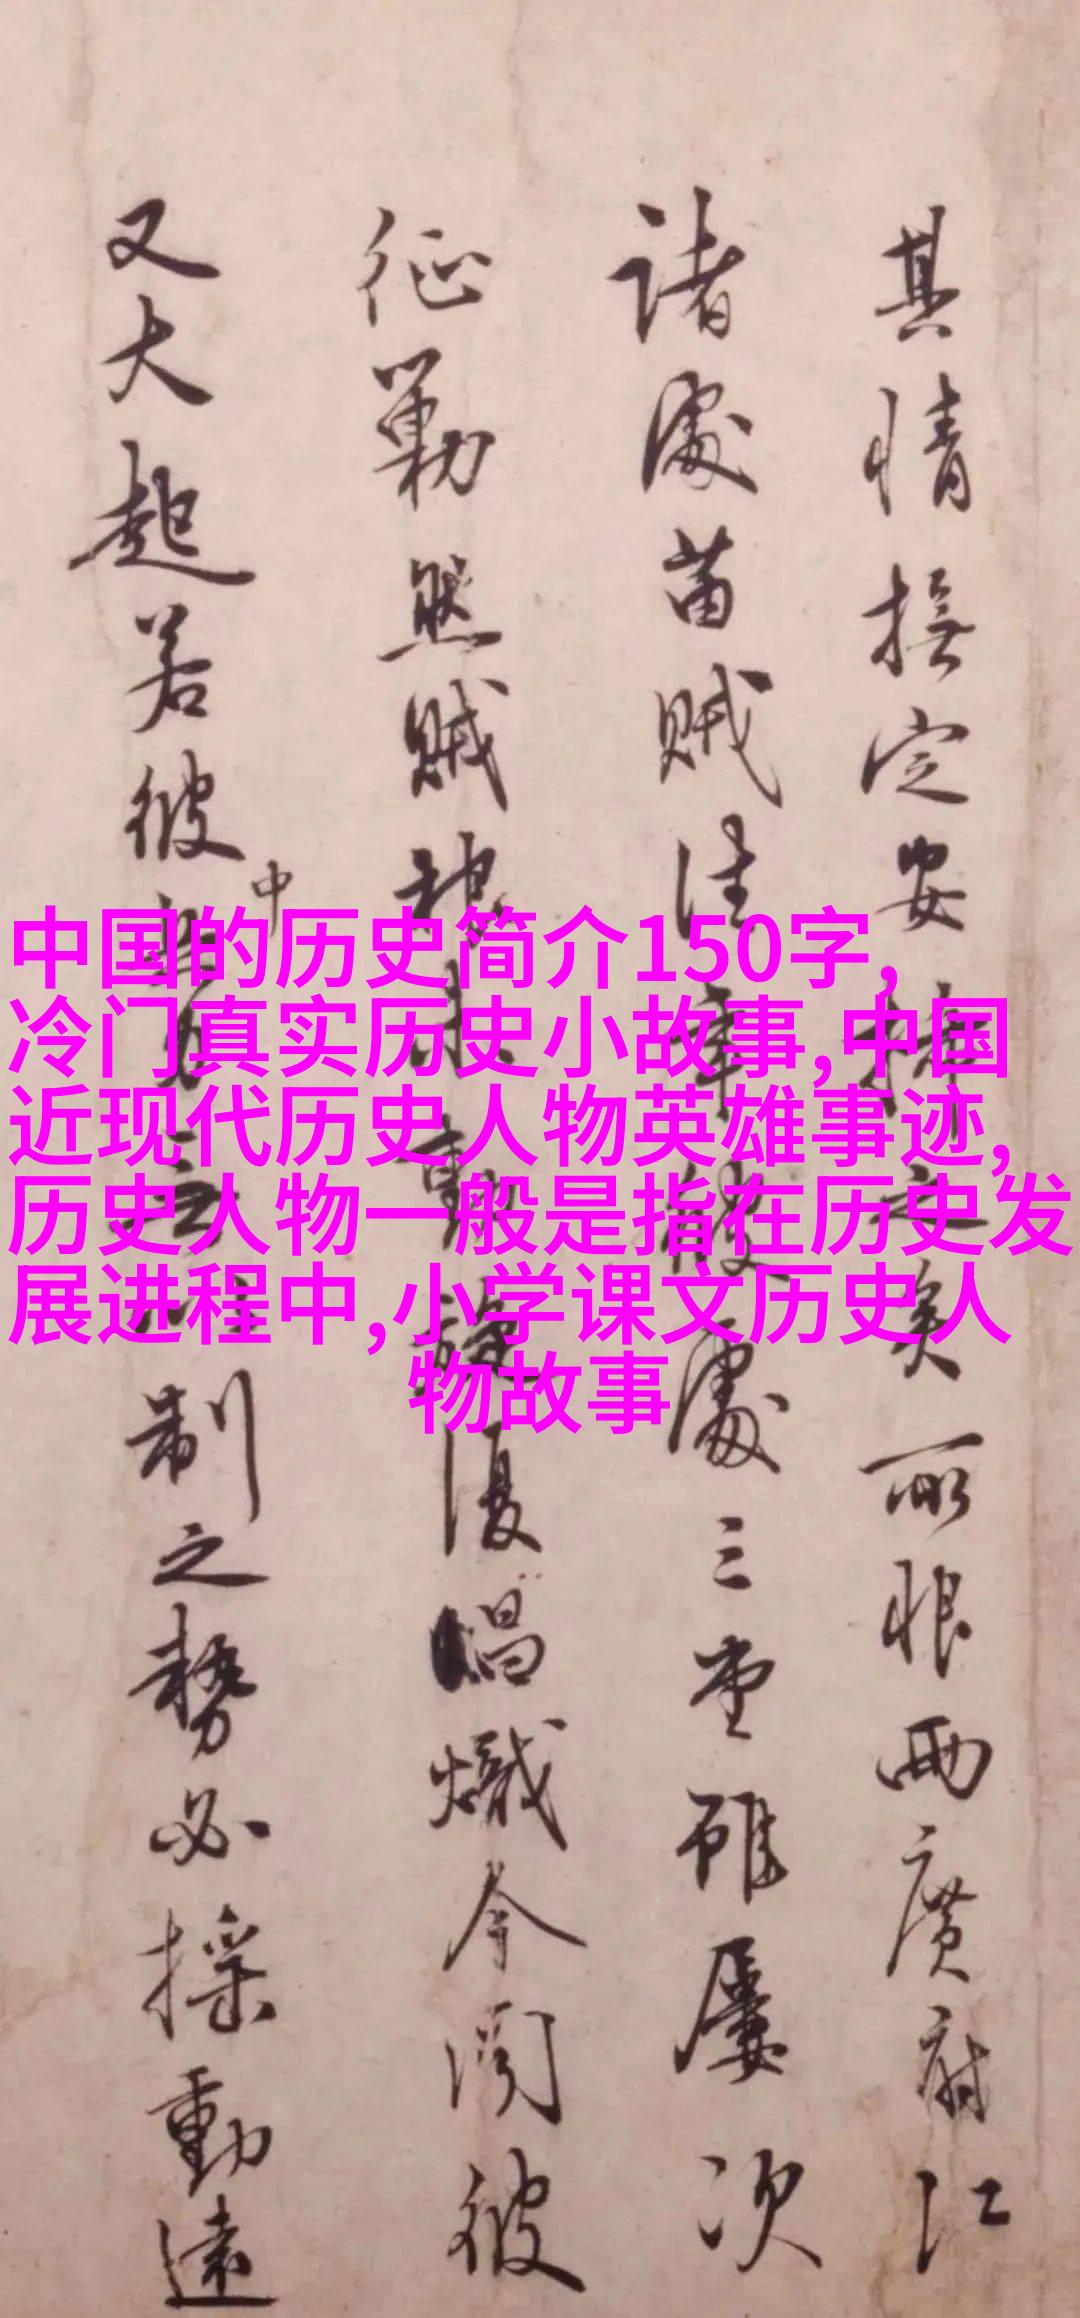 其情撫定安插之矣所恨兩廣府江
諸處苗賊往年彼處三堂雖屢次
征勦然賊根未動旋復昌熾今聞彼
又大起若彼中
制之勢必搖動遠
中国的历史简介150字,
冷门真实历史小故事,中国
近现代历史人物英雄事迹,
历史人物一般是指在历史发
展进程中,小学课文历史人
物故事